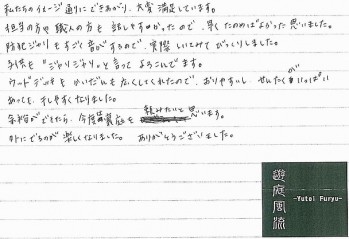 私たちのイメージ通りにできあがり、大変満足しています。
担当の方や職人の方も話しやすかったので、早くたのめばよかったと思いました。
防犯ジャリもすごく音がするので、実際しいてみてびっくりしました。
子供も"ジャリジャリ"と言ってよろこんでます。
ウッドデッキもかいだんも広くしてくれたので、おりやすいし せんたくものがいっぱい
あっても、干しやすくなりました。
余裕ができたら、今度は裏庭を頼みたいと思います。
外にでるのが楽しくなりました。 ありがとうございました。
遊庭風流
-Yutei Furyu-